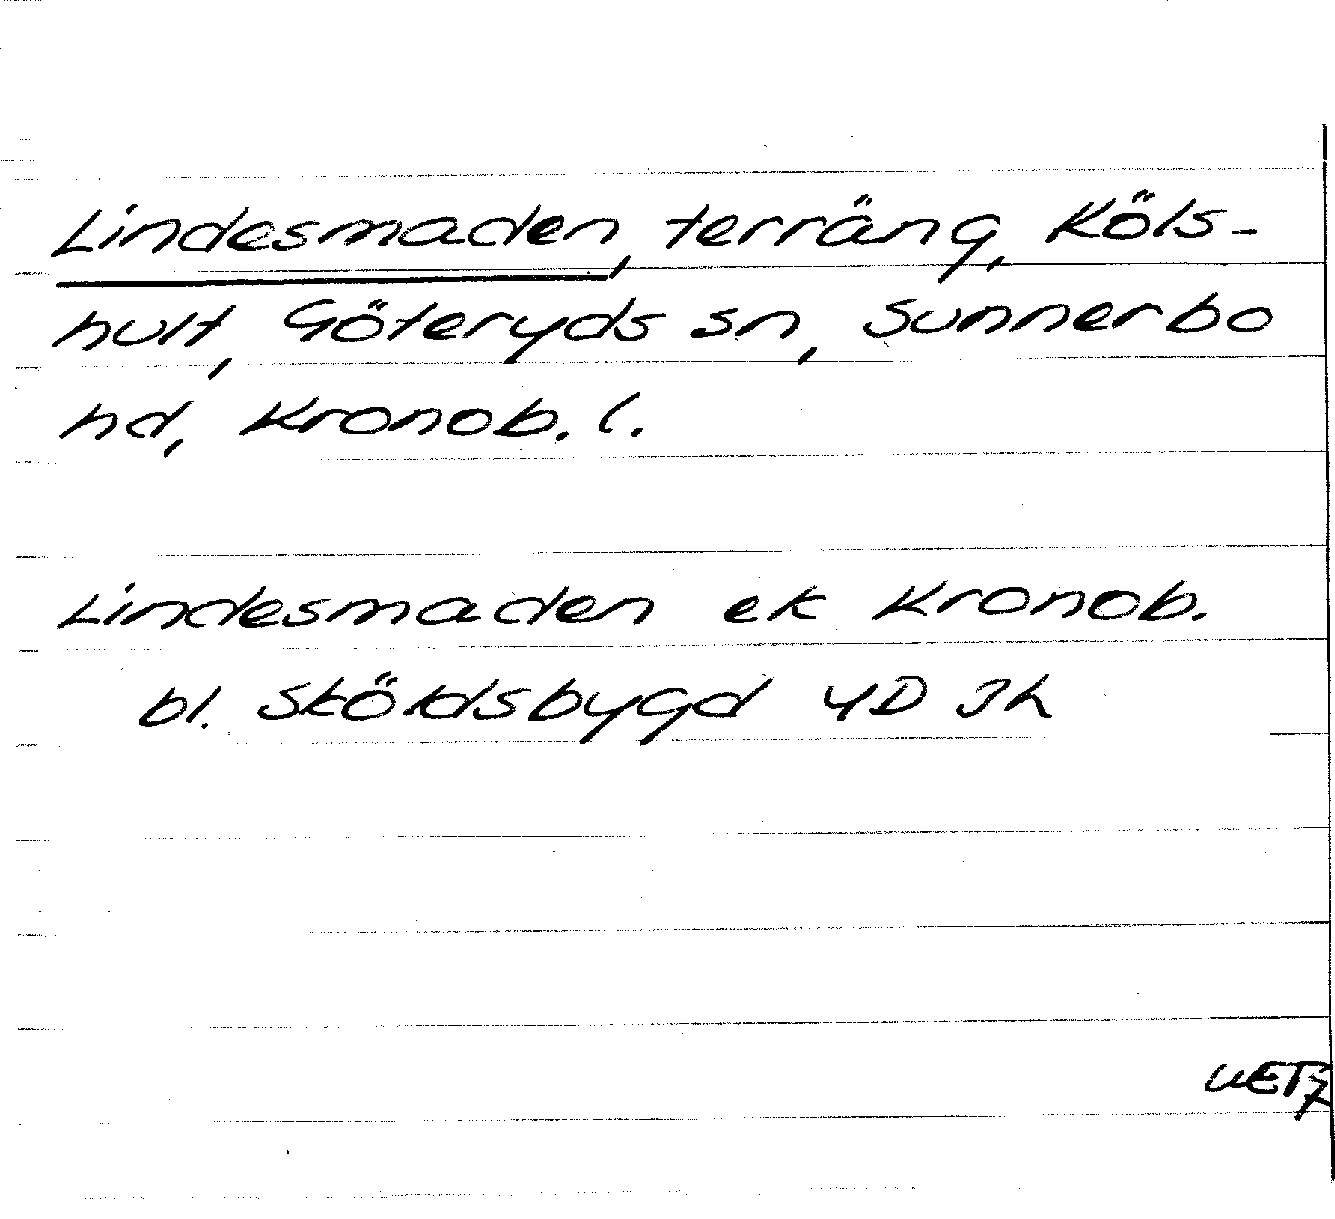 Lindesmaden, terräng, Köls-
hult, Göteryds sn, Sunnerbo
hd, Kronob. l.
Lindesmaden ek Kronob.
bl. Sköldsbygd 4D 3h